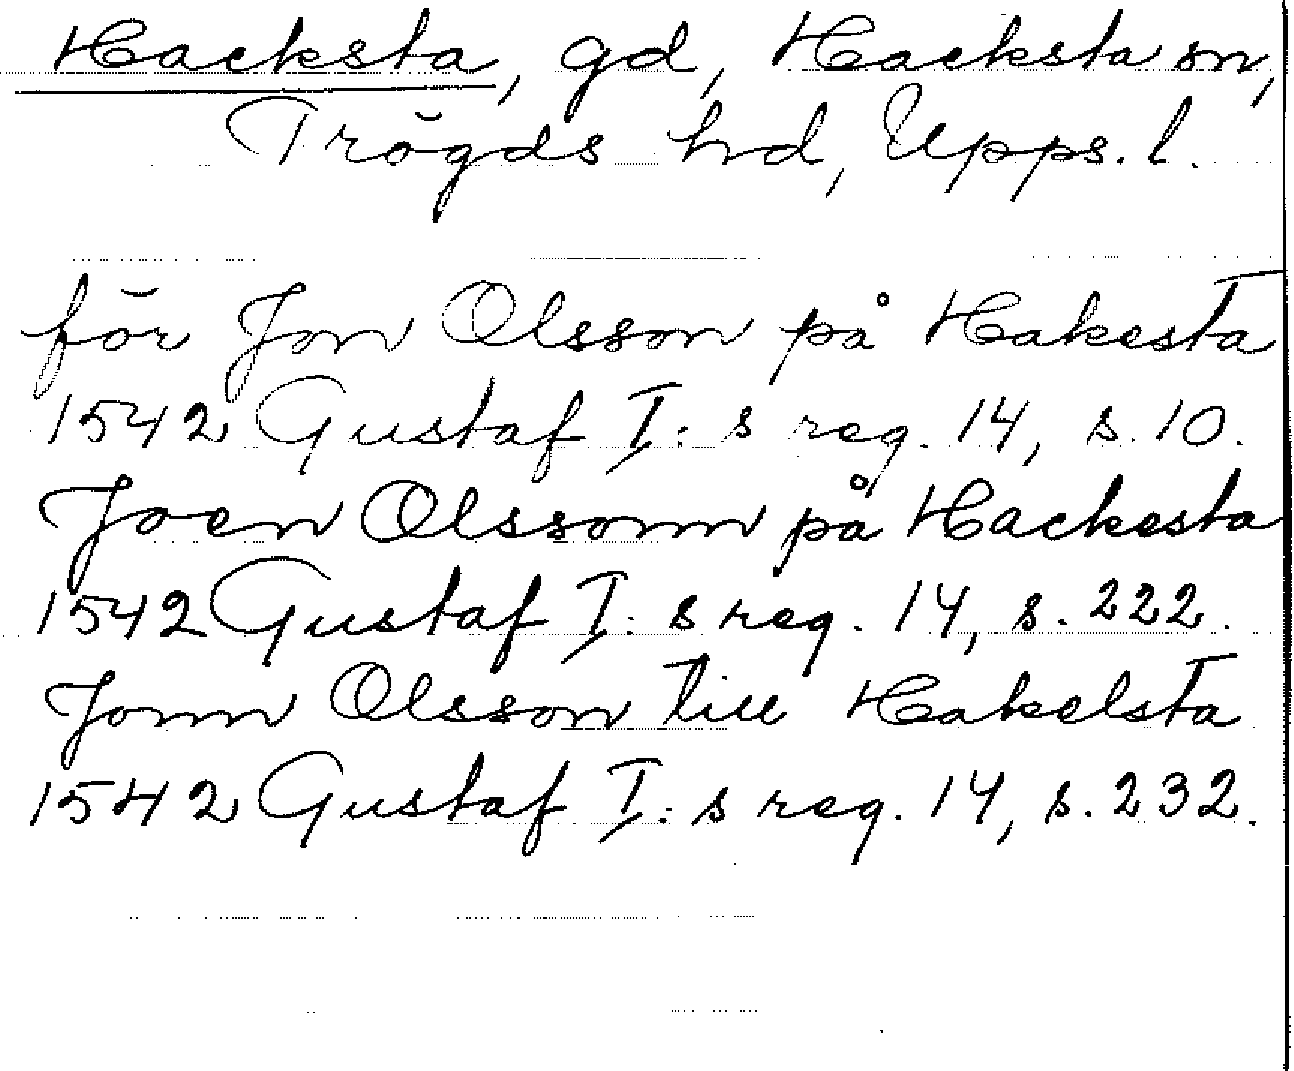 Hacksta, gd, Hacksta sn,
Trögds hd, Upps. l.
för Jon Olsson på Hakesta
1542 Gustaf I: s reg. 14, s. 10.
Joen Olssonn på Hackesta
1542 Gustaf I: s reg. 14, s. 222.
Jonn Olsson till Hakelsta
1542 Gustaf I: s reg. 14, s. 232.